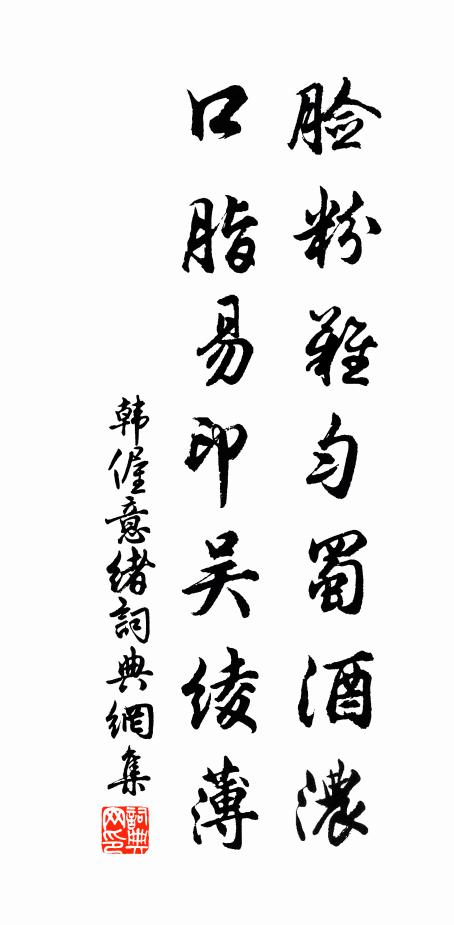 脸粉难匀蜀酒浓
口脂易印吴绫薄
韩偓意绪詞典網集
詞典
网印